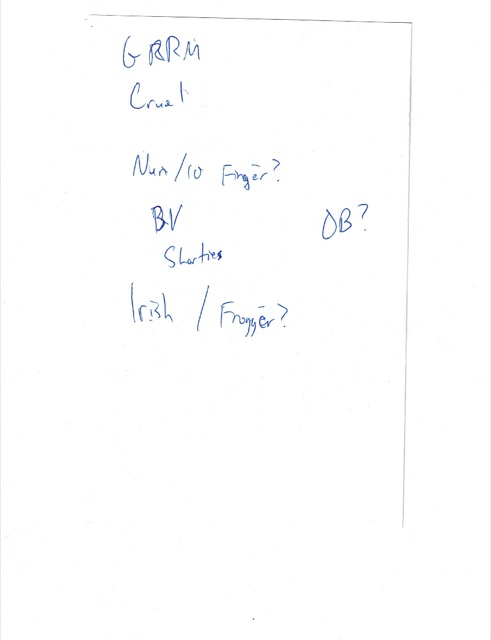 GRRM
Cruel
Nun/10 Finger?
BV OB?
Shorties
Irish / Frogger?